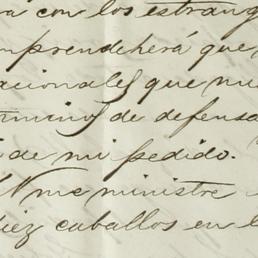 con los estrang
omprenderá que
acionales que nu
terminos de defensa
de mi pedido.
me ministre
diez caballos en l